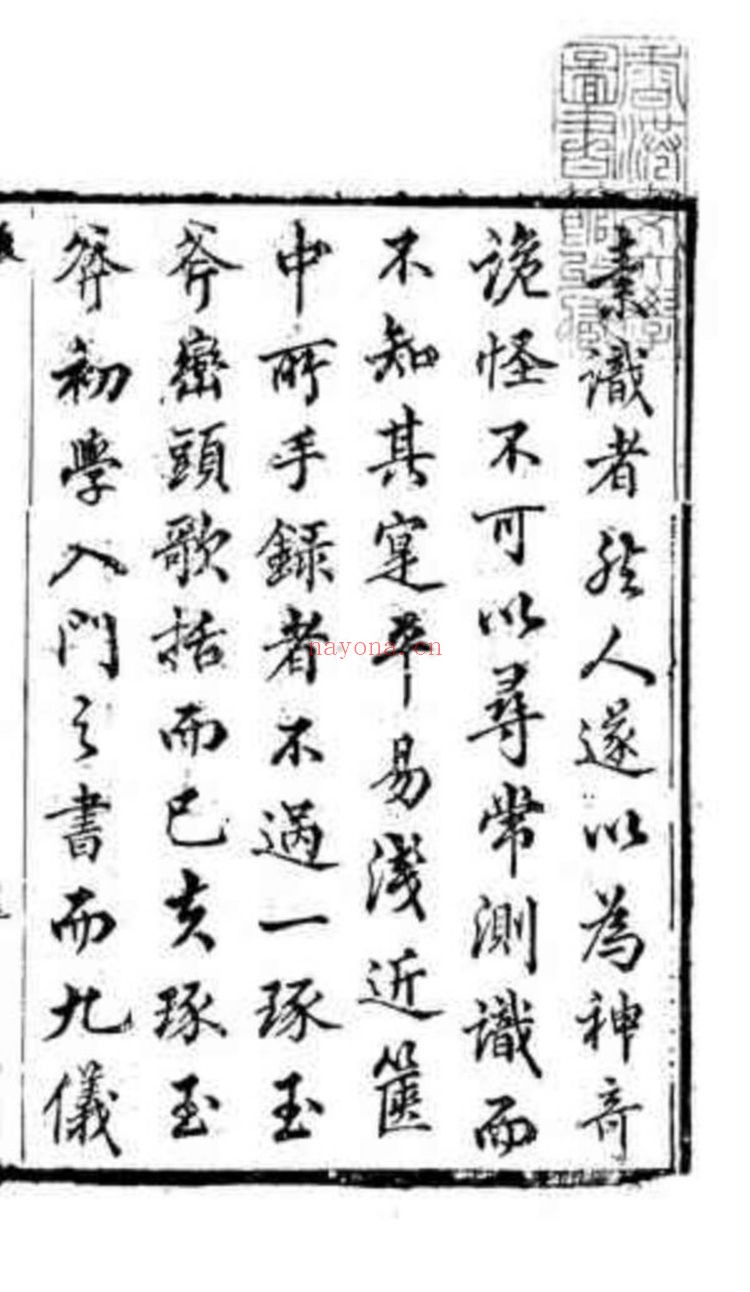 素識者於人遂以為神奇
詭怪不可以尋常測識而
不知其寔平易淺近篋
中所手録者不過一琢玉
斧巒頭歌括而已夫琢玉
斧初學入門之書而九儀
nayona.cn